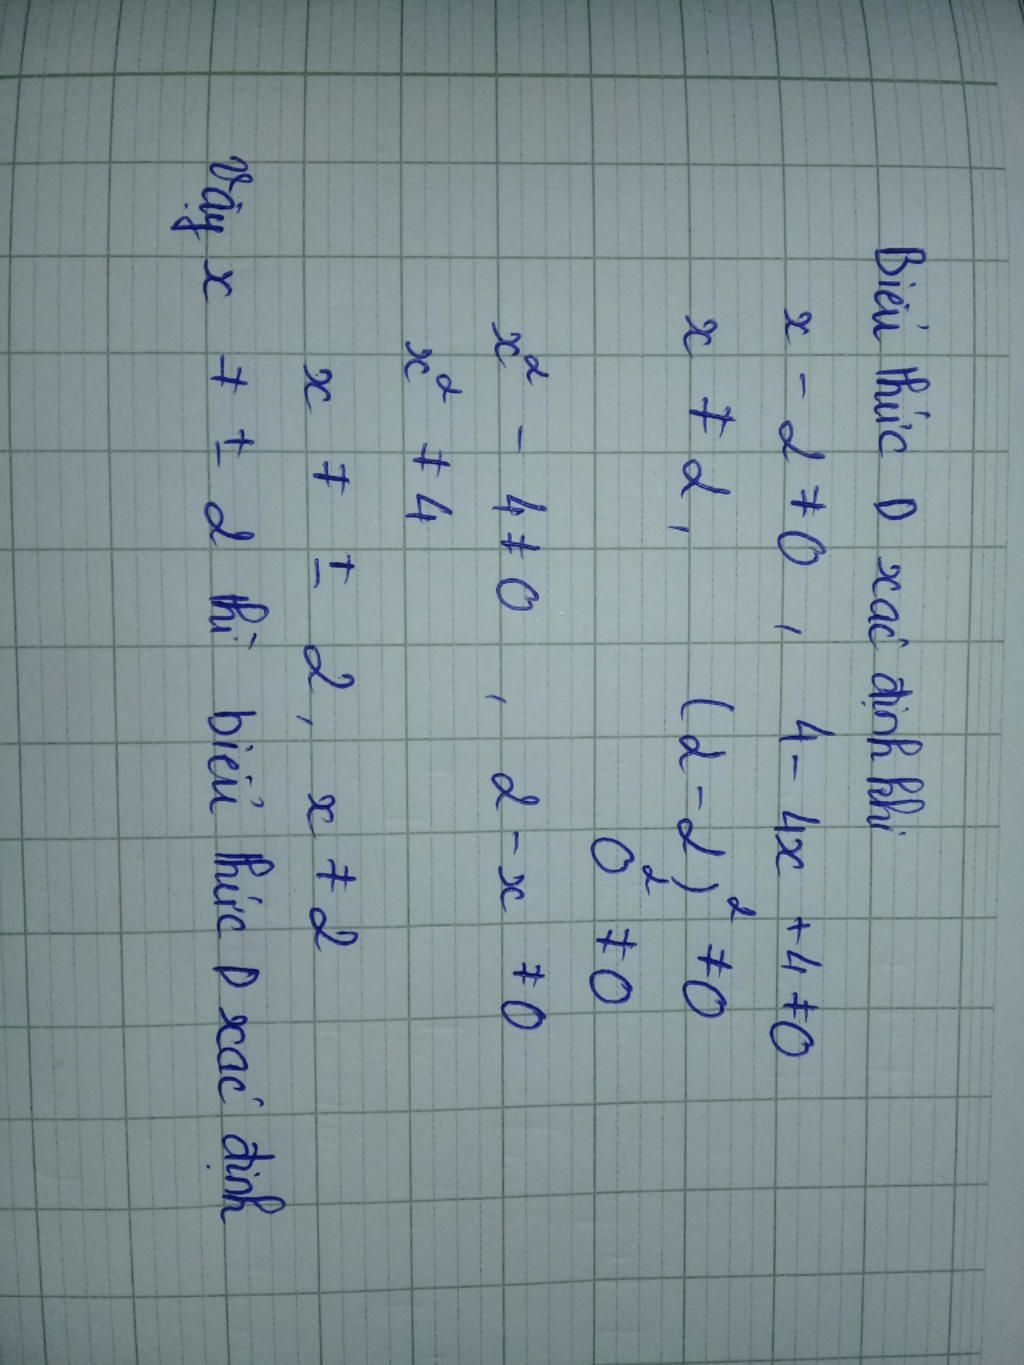 Biểu thức D xác định khi
x - 2 ≠ 0 , 4 - 4x + 4 ≠ 0
x ≠ 2 , (2 - 2)² ≠ 0
0² ≠ 0
x² - 4 ≠ 0 , 2 - x ≠ 0
x² ≠ 4
x ≠ ± 2 , x ≠ 2
Vậy x ≠ ± 2 thì biểu thức D xác định